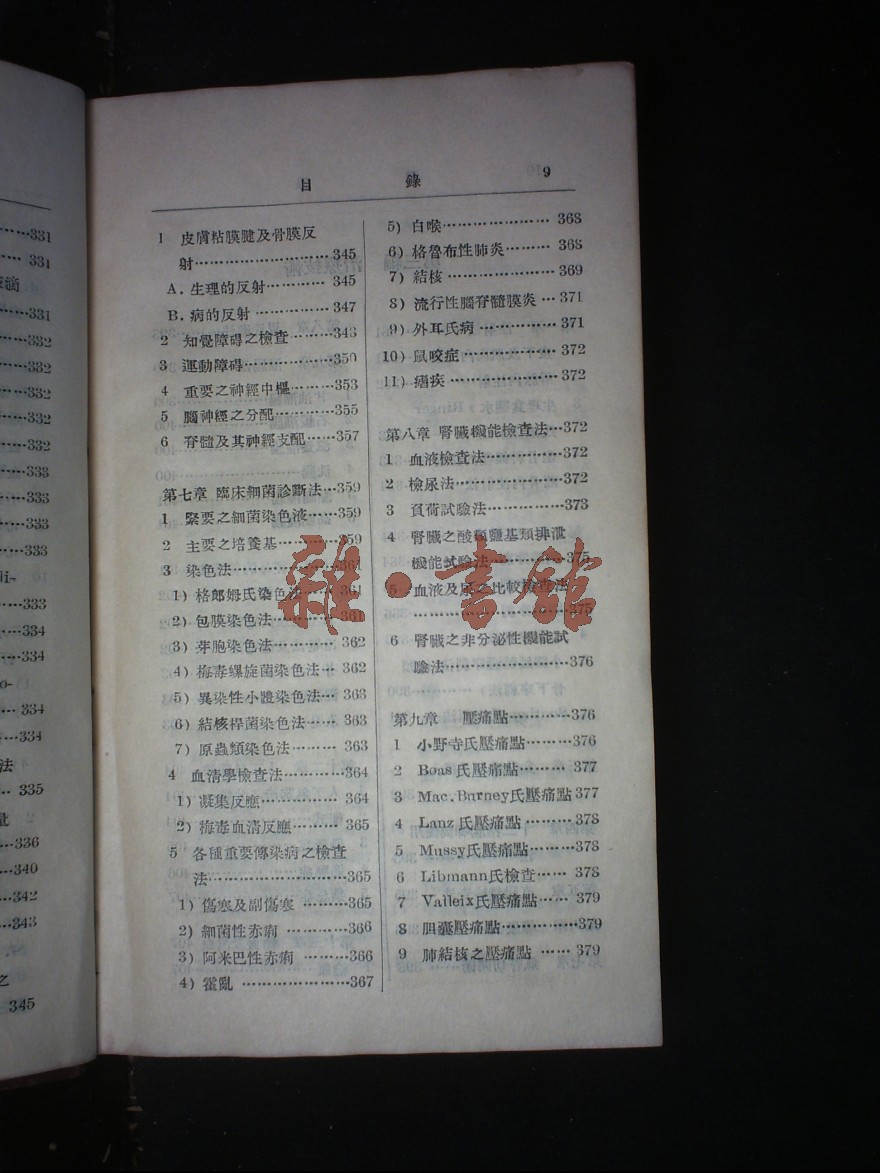 331
331
滴
331
332
332
332
332
332
333
333
333
333
334
334
334
334
法
335
量
336
340
342
343
之
345
目 錄 9
1 皮膚粘膜腱及骨膜反
射……………………345
A. 生理的反射…………345
B. 病的反射……………347
2 知覺障碍之檢查………343
3 運動障碍………………350
4 重要之神經中樞………353
5 腦神經之分配…………355
6 脊髓及其神經支配……357
第七章 臨床細菌診斷法…359
1 緊要之細菌染色液……359
2 主要之培養基…………359
3 染色法…………………361
1) 格郎姆氏染色法……361
2) 包膜染色法…………361
3) 芽胞染色法…………362
4) 梅毒螺旋菌染色法…362
5) 異染性小體染色法…363
6) 結核桿菌染色法……363
7) 原蟲類染色法………363
4 血清學檢查法…………364
1) 凝集反應……………364
2) 梅毒血清反應………365
5 各種重要傳染病之檢查
法……………………365
1) 傷寒及副傷寒………365
2) 細菌性赤痢…………366
3) 阿米巴性赤痢………366
4) 霍亂…………………367
5) 白喉…………………368
6) 格魯布性肺炎………368
7) 結核…………………369
8) 流行性腦脊髓膜炎…371
9) 外耳氏病……………371
10) 鼠咬症………………372
11) 瘧疾…………………372
第八章 腎臟機能檢查法…372
1 血液檢查法……………372
2 檢尿法…………………372
3 負荷試驗法……………373
4 腎臟之酸類鹽基類排泄
機能試驗法…………375
5 血液及尿之比較檢查法
………………………375
6 腎臟之非分泌性機能試
驗法…………………376
第九章 壓痛點…………376
1 小野寺氏壓痛點………376
2 Boas氏壓痛點…………377
3 Mac.Burney氏壓痛點377
4 Lanz氏壓痛點…………378
5 Mussy氏壓痛點………378
6 Libmann氏檢查………378
7 Valleix氏壓痛點………379
8 胆囊壓痛點……………379
9 肺結核之壓痛點………379
雜·書館